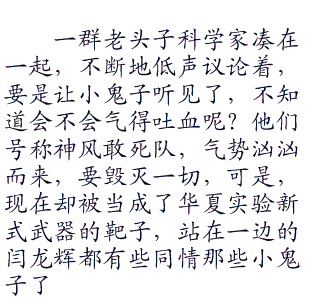 一群老头子科学家凑在
一起，不断地低声议论着，
要是让小鬼子听见了，不知
道会不会气得吐血呢？他们
号称神风敢死队，气势汹汹
而来，要毁灭一切，可是，
现在却被当成了华夏实验新
式武器的靶子，站在一边的
闫龙辉都有些同情那些小鬼
子了